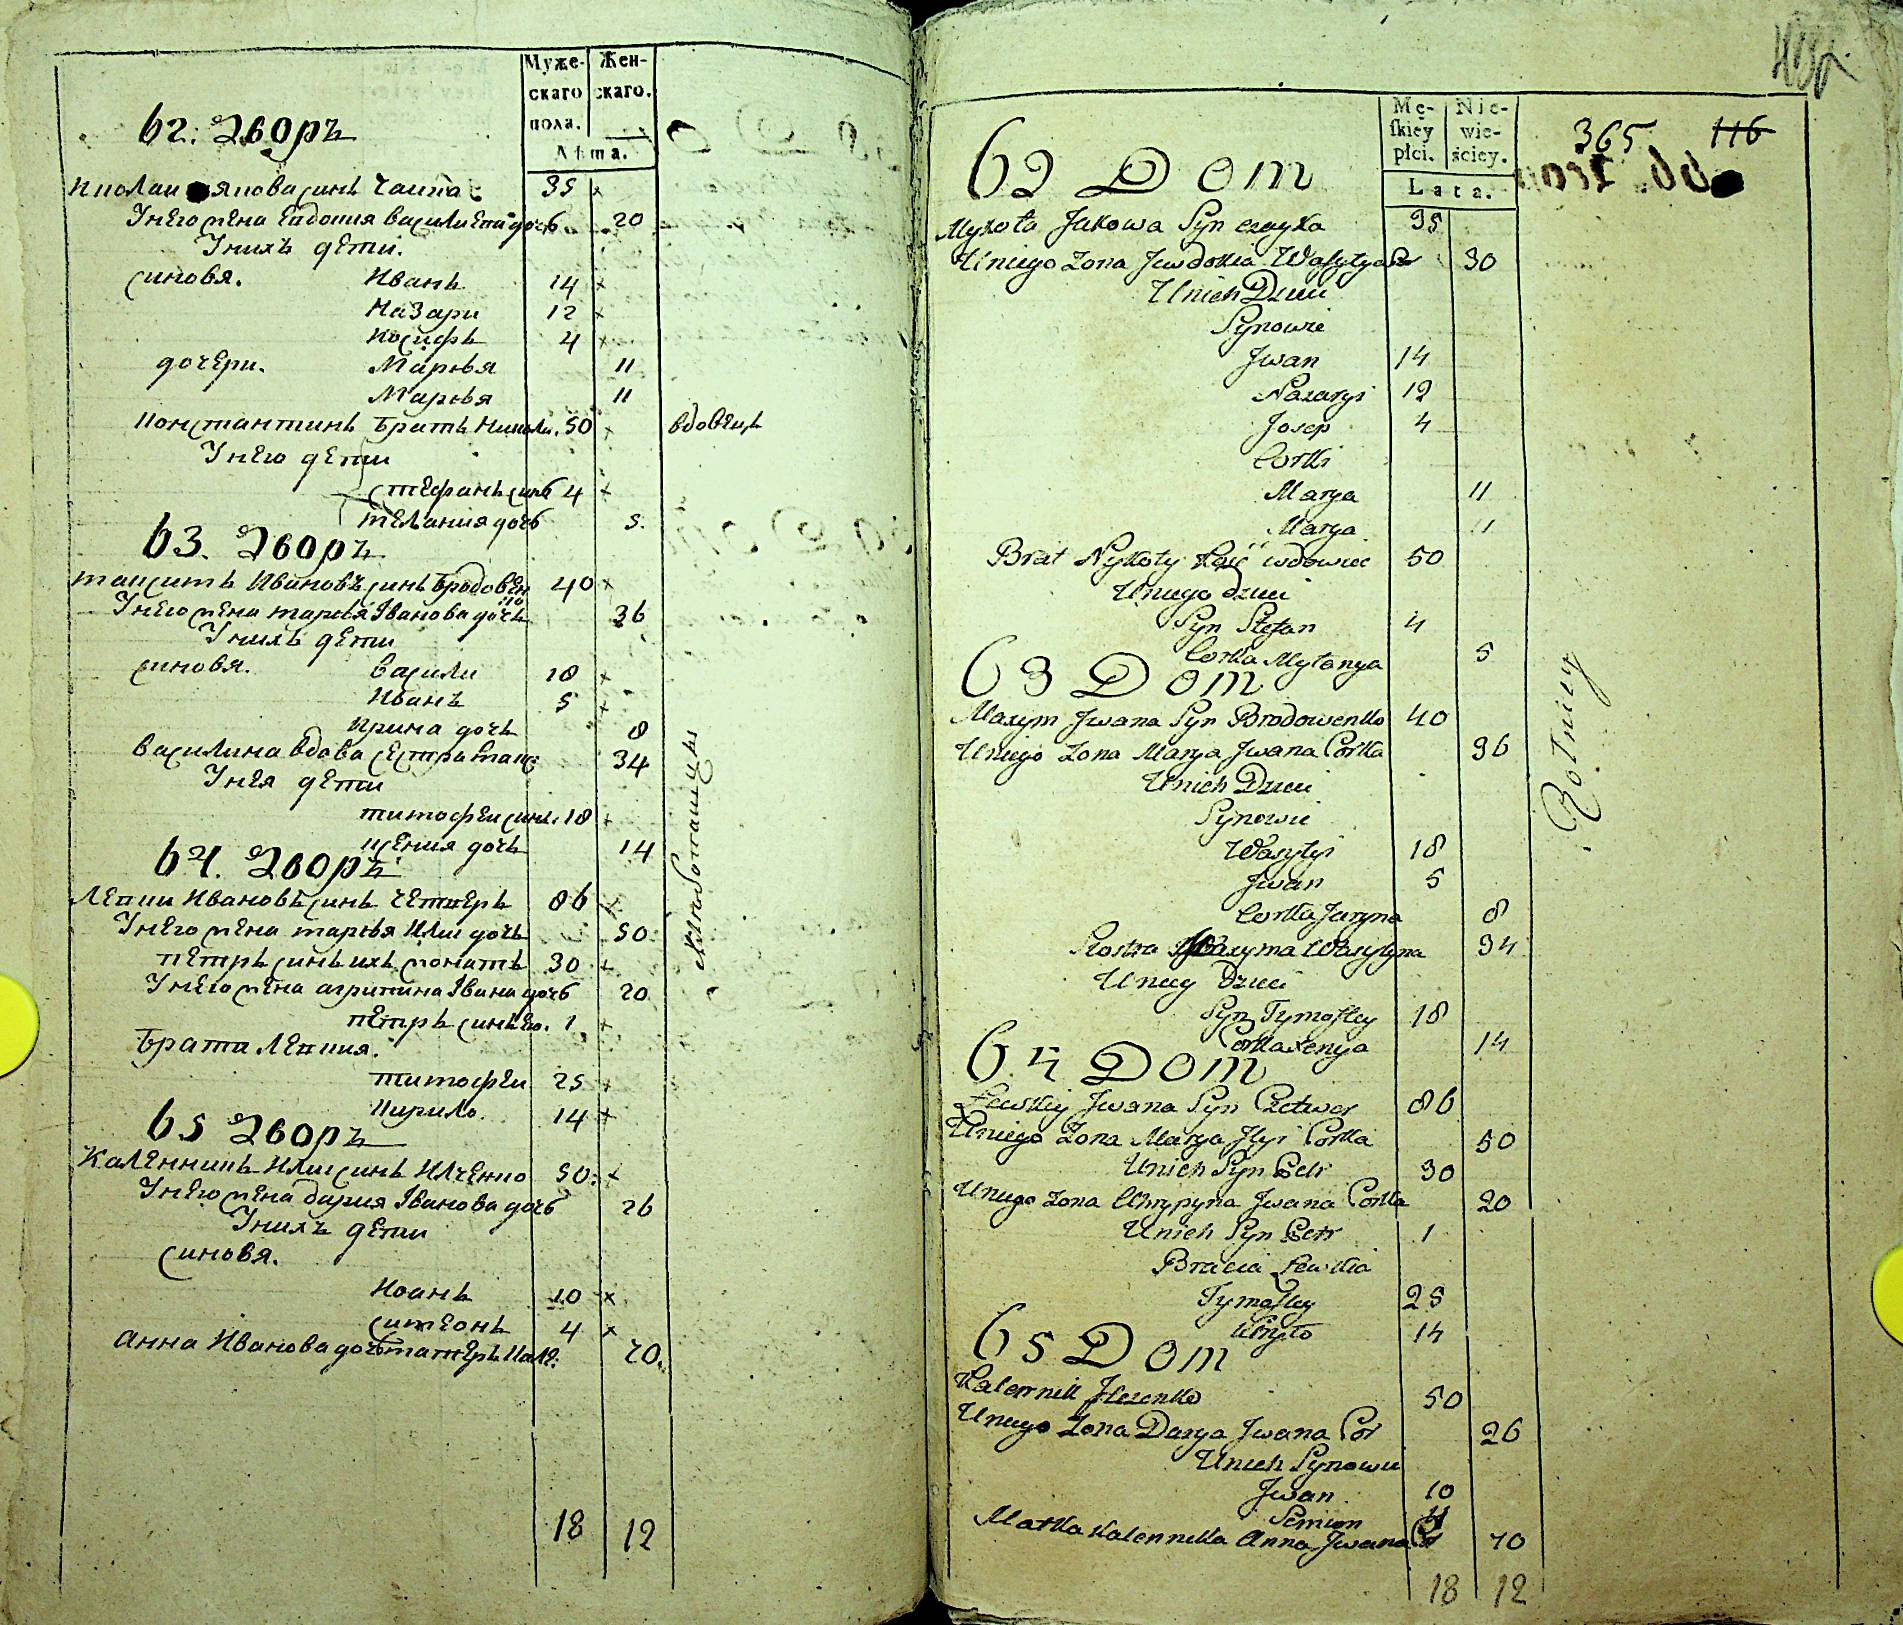 Муже-
скаго
пола.
Жен-
скаго.
Лѣта.
62. Дворъ
Николаи Якова синъ Чаика 35
У него жена Евдокия василиева дочь 20
У нихъ дети.
синовя. Иванъ 14
Назари 12
Иосифъ 4
дочери. Марья 11
Марья 11
Константинъ братъ Николи. 50 вдовецъ
У него дети
стефанъ синъ 4
мелания дочь 5.
63. Дворъ
максимъ Ивановъ синъ Бродовен
ко 40
У него жена марья Іванова дочь 36
У нихъ дети
синовя. василі 18
Иванъ 5
Ирина дочь 8
василина вдова сестра макс: 34
У нея дети
тимофеи синъ. 18
ксения дочь 14
64. Дворъ
Левки Ивановъ синъ четверъ 86
У него жена марья Или дочь 50
петръ синъ ихъ женатъ 30
У него жена агрипина Івана дочь 20
петръ синъ ево. 1
Брати Левкия.
тимофеи 25
Кирило. 14
65 Дворъ
Каленникъ Или синъ Илченко 50:
У него жена дария Іванова дочь 26
У нихъ дети
синовя.
Иоанъ 10
симеонъ 4
Анна Иванова дочь матерь Кале: 70.
18 12
Mę-
skiey
płci.
Nie-
wie-
ściey.
Lata.
365 116
62 Dom
Mykoła Jakowa Syn czayka 35
U niego Zona Jewdokia Wasylya Cor 30
U nich Dzieci
Synowie
Jwan 14
Nazaryi 12
Josep 4
Corki
Marya 11
Marya 11
Brat Nykoły Kość wdowiec 50
U niego dzieci
Syn Stefan 4
Corka Mylanya 5
63 Dom
Maxym Jwana Syn Brodowenko 40
U niego Zona Marya Jwana Corka 36
U nich Dzieci
Synowie
Wasylyi 18
Jwan 5
Corka Jaryna 8
Siostra Maxyma Wasylyna 34
U niey Dzieci
Syn Tymofiey 18
Corka Xenya 14
Rolnicy
64 Dom
Lewkiy Jwana Syn Czetwer 86
U niego Zona Marya Jlyi Corka 50
U nich Syn Petr 30
U niego Zona Ahrypyna Jwana Corka 20
U nich Syn Petr 1
Bracia Lewkia
Tymofiey 25
Kiryło 14
65 Dom
Kalennik Jlczenko 50
U niego Zona Darya Jwana Cor 26
U nich Synowie
Jwan 10
Semion 4
Matka Kalennika Anna Jwana Cor 70
18 12